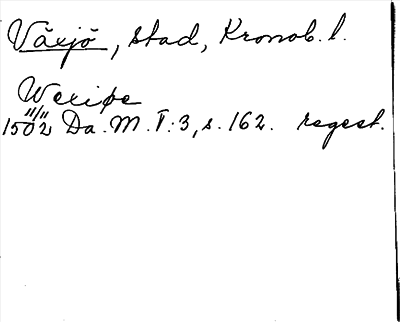 Växjö, stad, Kronob. l.
Wexiøe
11/11
1502 Da. M. I: 3, s. 162. regest.